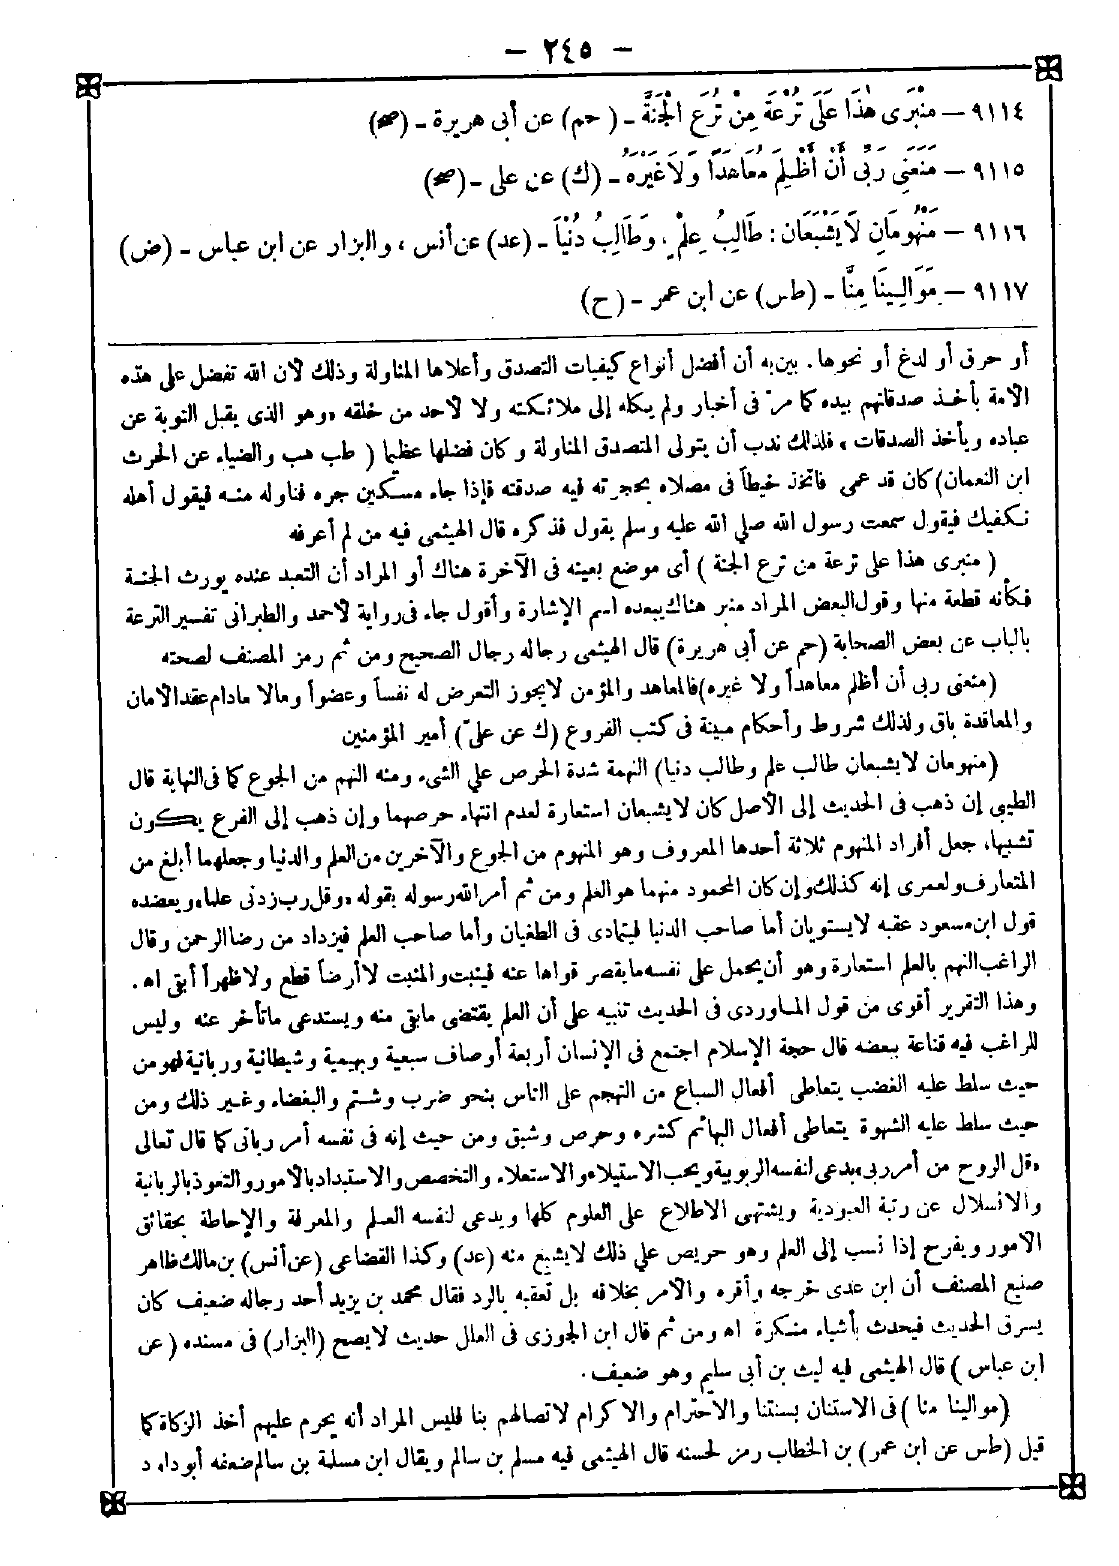 - ٢٤٥ -
٩١١٤ - مِنْبَرِى هٰذَا عَلَى تُرْعَةٍ مِنْ تُرَعِ الْجَنَّةِ - (حم) عن أبى هريرة - (صح)
٩١١٥ - مَنَعَنِى رَبِّى أَنْ أَظْلِمَ مُعَاهَدًا وَلَا غَيْرَهُ - (ك) عن على - (صح)
٩١١٦ - مَنْهُومَانِ لَا يَشْبَعَانِ: طَالِبُ عِلْمٍ، وَطَالِبُ دُنْيَا - (عد) عن أنس ، والبزار عن ابن عباس - (ض)
٩١١٧ - مَوَالِينَا مِنَّا - (طس) عن ابن عمر - (ح)
أو حرق أو لدغ أو نحوها. بين به أن أفضل أنواع كيفيات التصدق وأعلاها المناولة وذلك لأن الله تفضل على هذه
الأمة بأخذ صدقاتهم بيده كما مر فى أخبار ولم يكله إلى ملائكته ولا لأحد من خلقه «وهو الذى يقبل التوبة عن
عباده ويأخذ الصدقات» فلذلك ندب أن يتولى المتصدق المناولة وكان فضلها عظيما (طب هب والضياء عن الحرث
ابن النعمان) كان قد عمى فاتخذ خيطاً فى مصلاه بحجرته فيه صدقته فإذا جاء مسكين جره فناوله منه فيقول أهله
نكفيك فيقول سمعت رسول الله صلي الله عليه وسلم يقول فذكره قال الهيثمى فيه من لم أعرفه
(منبرى هذا على ترعة من ترع الجنة) أى موضع بعينه فى الآخرة هناك أو المراد أن التعبد عنده يورث الجنة
فكأنه قطعة منها وقول البعض المراد منبر هناك يبعده اسم الإشارة وأقول جاء فى رواية لأحمد والطبرانى تفسير الترعة
بالباب عن بعض الصحابة (حم عن أبى هريرة) قال الهيثمى رجاله رجال الصحيح ومن ثم رمز المصنف لصحته
(منعنى ربى أن أظلم معاهداً ولا غيره) فالمعاهد والمؤمن لايجوز التعرض له نفساً وعضواً ومالا مادام عقد الأمان
والمعاقدة باق ولذلك شروط وأحكام مبينة فى كتب الفروع (ك عن علىّ) أمير المؤمنين
(منهومان لايشبعان طالب علم وطالب دنيا) النهمة شدة الحرص علي الشىء ومنه النهم من الجوع كما فى النهاية قال
الطيبى إن ذهب فى الحديث إلى الأصل كان لايشبعان استعارة لعدم انتهاء حرصهما وإن ذهب إلى الفرع يكون
تشبيها، جعل أفراد المنهوم ثلاثة أحدها المعروف وهو المنهوم من الجوع والآخرين من العلم والدنيا وجعلهما أبلغ من
المتعارف ولعمرى إنه كذلك وإن كان المحمود منهما هو العلم ومن ثم أمر الله رسوله بقوله «وقل رب زدنى علما» ويعضده
قول ابن مسعود عقبه لايستويان أما صاحب الدنيا فيتمادى فى الطغيان وأما صاحب العلم فيزداد من رضا الرحمن وقال
الراغب النهم بالعلم استعارة وهو أن يحمل على نفسه مايقصر قواها عنه فينبت والمنبت لا أرضاً قطع ولا ظهراً أبقى اه .
وهذا التقرير أقوى من قول الماوردى فى الحديث تنبيه علي أن العلم يقتضى مابقى منه ويستدعى ماتأخر عنه وليس
للراغب فيه قناعة ببعضه قال حجة الإسلام اجتمع فى الإنسان أربعة أوصاف سبعية وبهيمية وشيطانية وربانية فهو من
حيث سلط عليه الغضب يتعاطى أفعال السباع من التهجم على الناس بنحو ضرب وشتم والبغضاء وغير ذلك ومن
حيث سلط عليه الشهوة يتعاطى أفعال البهائم كشره وحرص وشبق ومن حيث إنه فى نفسه أمر ربانى كما قال تعالى
«قل الروح من أمر ربى» يدعى لنفسه الربوبية ويحب الاستيلاء والاستعلاء والتخصص والاستبداد بالأمور والتعوذ بالربانية
والانسلال عن رتبة العبودية ويشتهى الاطلاع على العلوم كلها ويدعى لنفسه العلم والمعرفة والإحاطة بحقائق
الأمور ويفرح إذا نسب إلى العلم وهو حريص علي ذلك لايشبع منه (عد) وكذا القضاعى (عن أنس) بن مالك ظاهر
صنيع المصنف أن ابن عدى خرجه وأقره والأمر بخلافه بل تعقبه بالرد فقال محمد بن يزيد أحد رجاله ضعيف كان
يسرق الحديث فيحدث بأشياء منكرة اه ومن ثم قال ابن الجوزى فى العلل حديث لايصح (البزار) فى مسنده (عن
ابن عباس) قال الهيثمى فيه ليث بن أبى سليم وهو ضعيف .
(موالينا منا) فى الاستنان بسنتنا والاحترام والإكرام لاتصالهم بنا فليس المراد أنه يحرم عليهم أخذ الزكاة كما
قيل (طس عن ابن عمر) بن الخطاب رمز لحسنه قال الهيثمى فيه مسلم بن سالم ويقال ابن مسلمة بن سالم ضعفه أبو داود